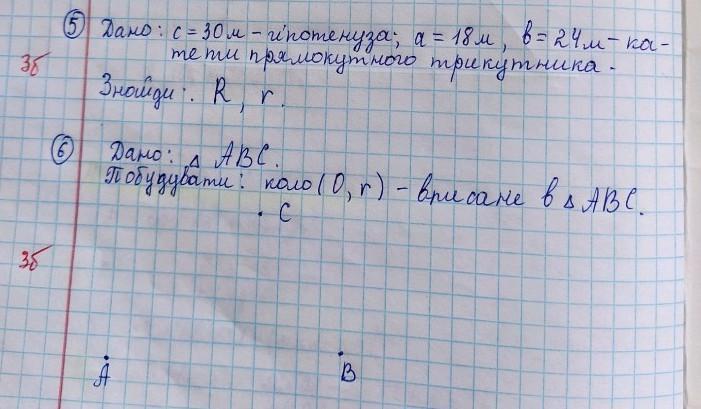 ⑤ Дано: c = 30 м – гіпотенуза; a = 18 м, b = 24 м – ка-
3б
тети прямокутного трикутника.
Знайди: R, r.
⑥ Дано: △ ABC.
Побудувати: коло (O, r) – вписане в △ ABC.
C
3б
A
B